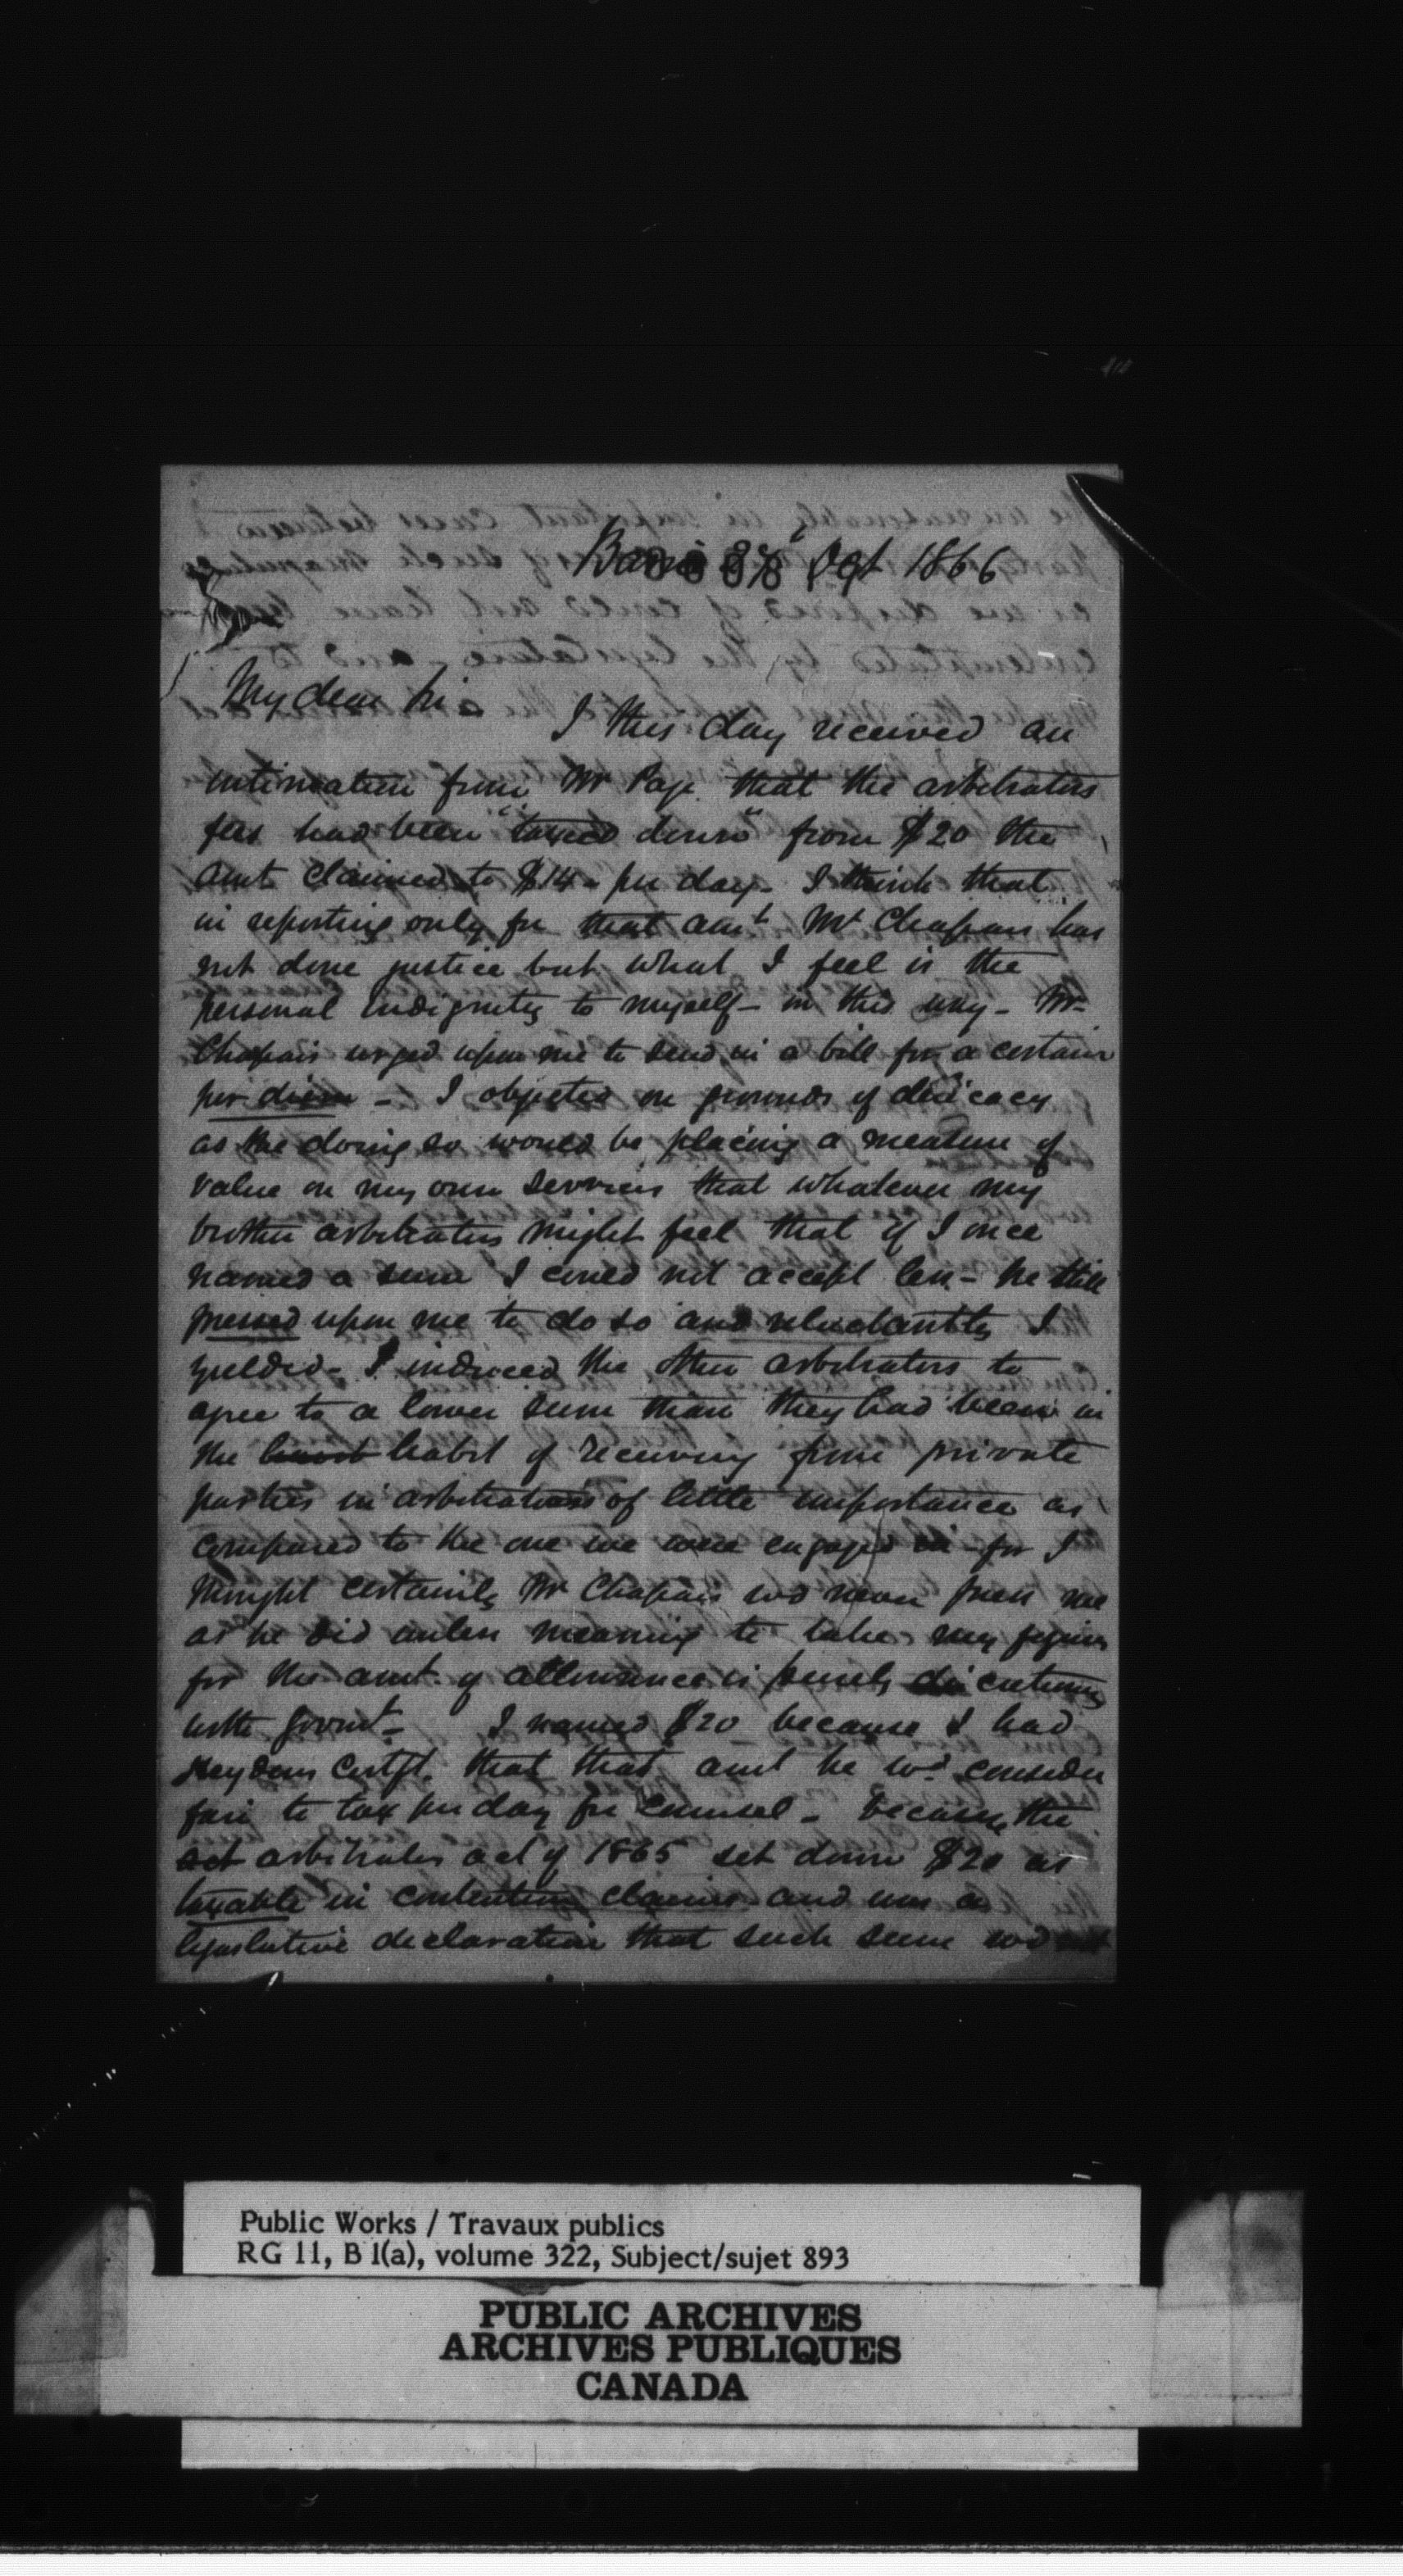 Barrie Oct 1866
My dear Sir
I this day received an
intimation from Mr Page that the arbitrators
fees had been "taxed down" from $20 the
amt claimed to $14 - per day - I think that
in reporting only for that amt Mr Chapais has
not done justice but what I feel is the
personal indignity to myself - in this way - Mr
Chapais urged upon me to send in a bill for a certain
per diem - I objected on grounds of delicacy
as the doing so would be placing a measure of
value on my own services that whatever my
brother arbitrators might feel that if I once
named a sum I could not accept less - he still
pressed upon me to do so and reluctantly I
yielded - I induced the other arbitrators to
agree to a lower sum than they had been in
the habit of receiving from private
parties in arbitrations of little importance as
compared to the one we were engaged in - for I
thought certainly Mr Chapais wod never press me
as he did unless meaning to take my figures
for the amt. of allowance is purely discretionary
with Govmt - I named $20 because I had
Heydens Certft. that that amt he wd consider
fair to tax per day for Counsel - because the
act arbitrators act of 1865 set down $20 as
taxable in contentious claims and was a
legislative declaration that such sum wod
Public Works / Travaux publics
RG 11, B 1(a), volume 322, Subject/sujet 893
PUBLIC ARCHIVES
ARCHIVES PUBLIQUES
CANADA